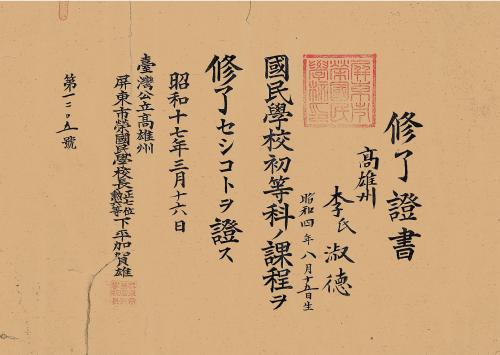 修了證書
高雄州
李氏淑德
昭和四年八月十五日生
國民學校初等科ノ課程ヲ
修了セシコトヲ證ス
昭和十七年三月十六日
臺灣公立高雄州
屏東市榮國民學校長正七位勲六等下平加賀雄
第一二〇五號
屏東市榮國民學校印